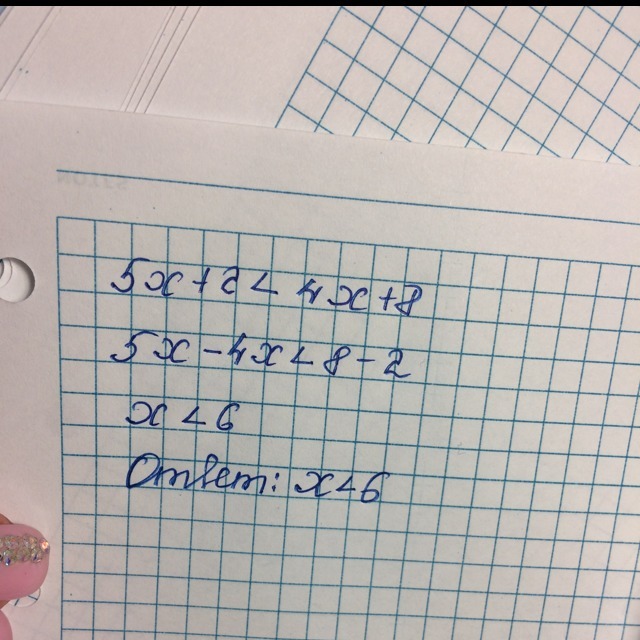 5x+2< 4x+8
5x-4x<8-2
x<6
Ответ: x<6